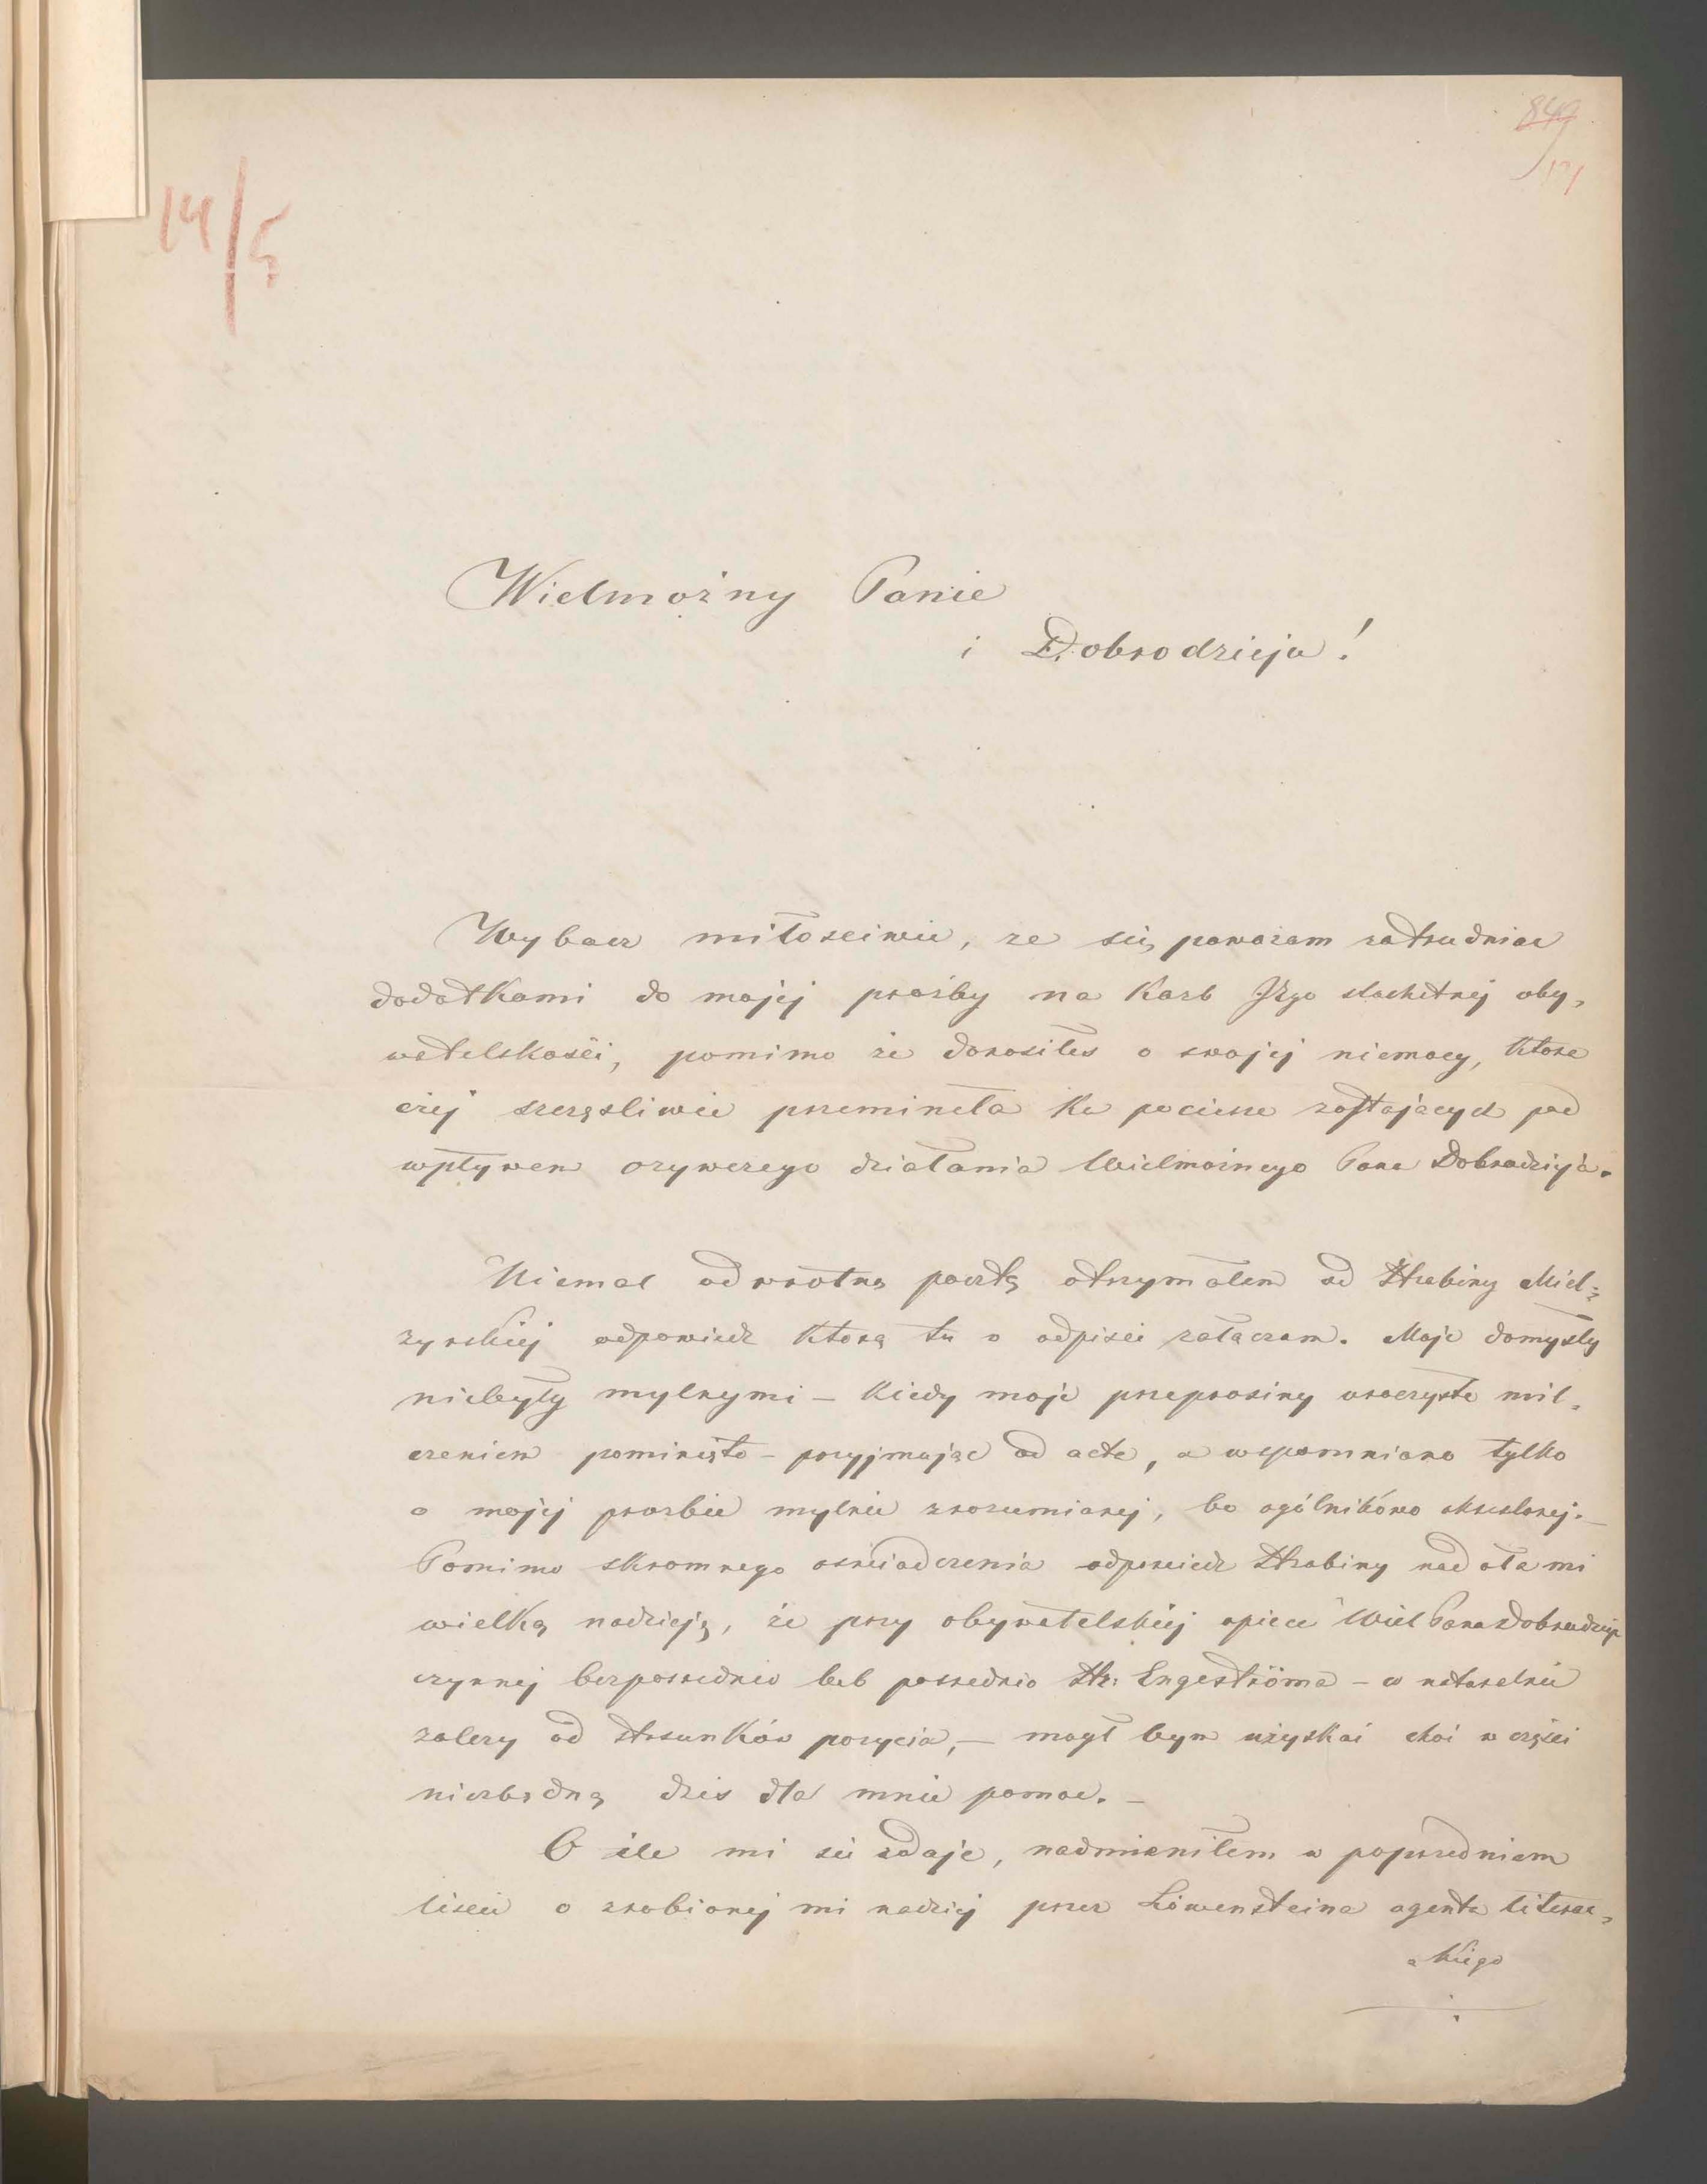 849
14/5
Wielmożny Panie
i Dobrodzieju!
Wybacz miłosciwie, ze się powazam zatrudniac
dodatkami do mojej prośby na karb Jego slachetnej oby,
watelskości, pomimo że donosiłes o swojej niemocy, ktora
ożej szczęsliwie przemineła ku pociesze zostających pod
wpływem ożywczego działania Wielmożnego Pana Dobrodzieja.
Niemal odwrotną pocztą otrzymałem od Hrabiny Miel,
żynskiej odpowiedz ktorą tu w odpisie załaczam. Moje domysły
niebyły mylnymi – kiedy moje przeprosiny uroczyste mil,
czeniem pominięto – przyjmując ad acta, a wspomniano tylko
o mojej prosbie mylnie zrozumianej, bo ogólnikowo skreslonej. –
Pomimo skromnego oswiadczenia odpowiedz Hrabiny nadała mi
wielką nadzieję, że przy obywatelskiej opiece Wiel Pana Dobrodzieja
czynnej bezposrednio lub posrednio Hr: Engeströma – co naturalnie
zalezy od stosunków pozycia, – mogł bym użyskać choć w części
niezbędną dzis dla mnie pomoc. –
O ile mi sie zdaje, nadmieniłem w poprzedniem
liscie o zrobionej mi nadziej przez Löwensteina agenta literac,
kiego